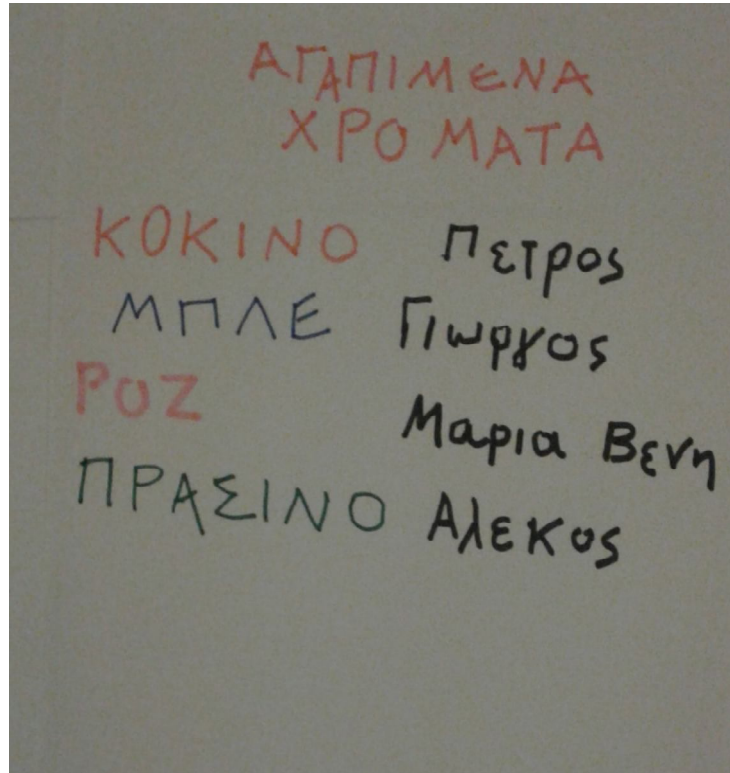 ΑΓΑΠΙΜΕΝΑ
ΧΡΟΜΑΤΑ
ΚΟΚΙΝΟ Πετρος
ΜΠΛΕ Γιωργος
ΡΟΖ Μαρια Βενη
ΠΡΑΣΙΝΟ Αλεκος